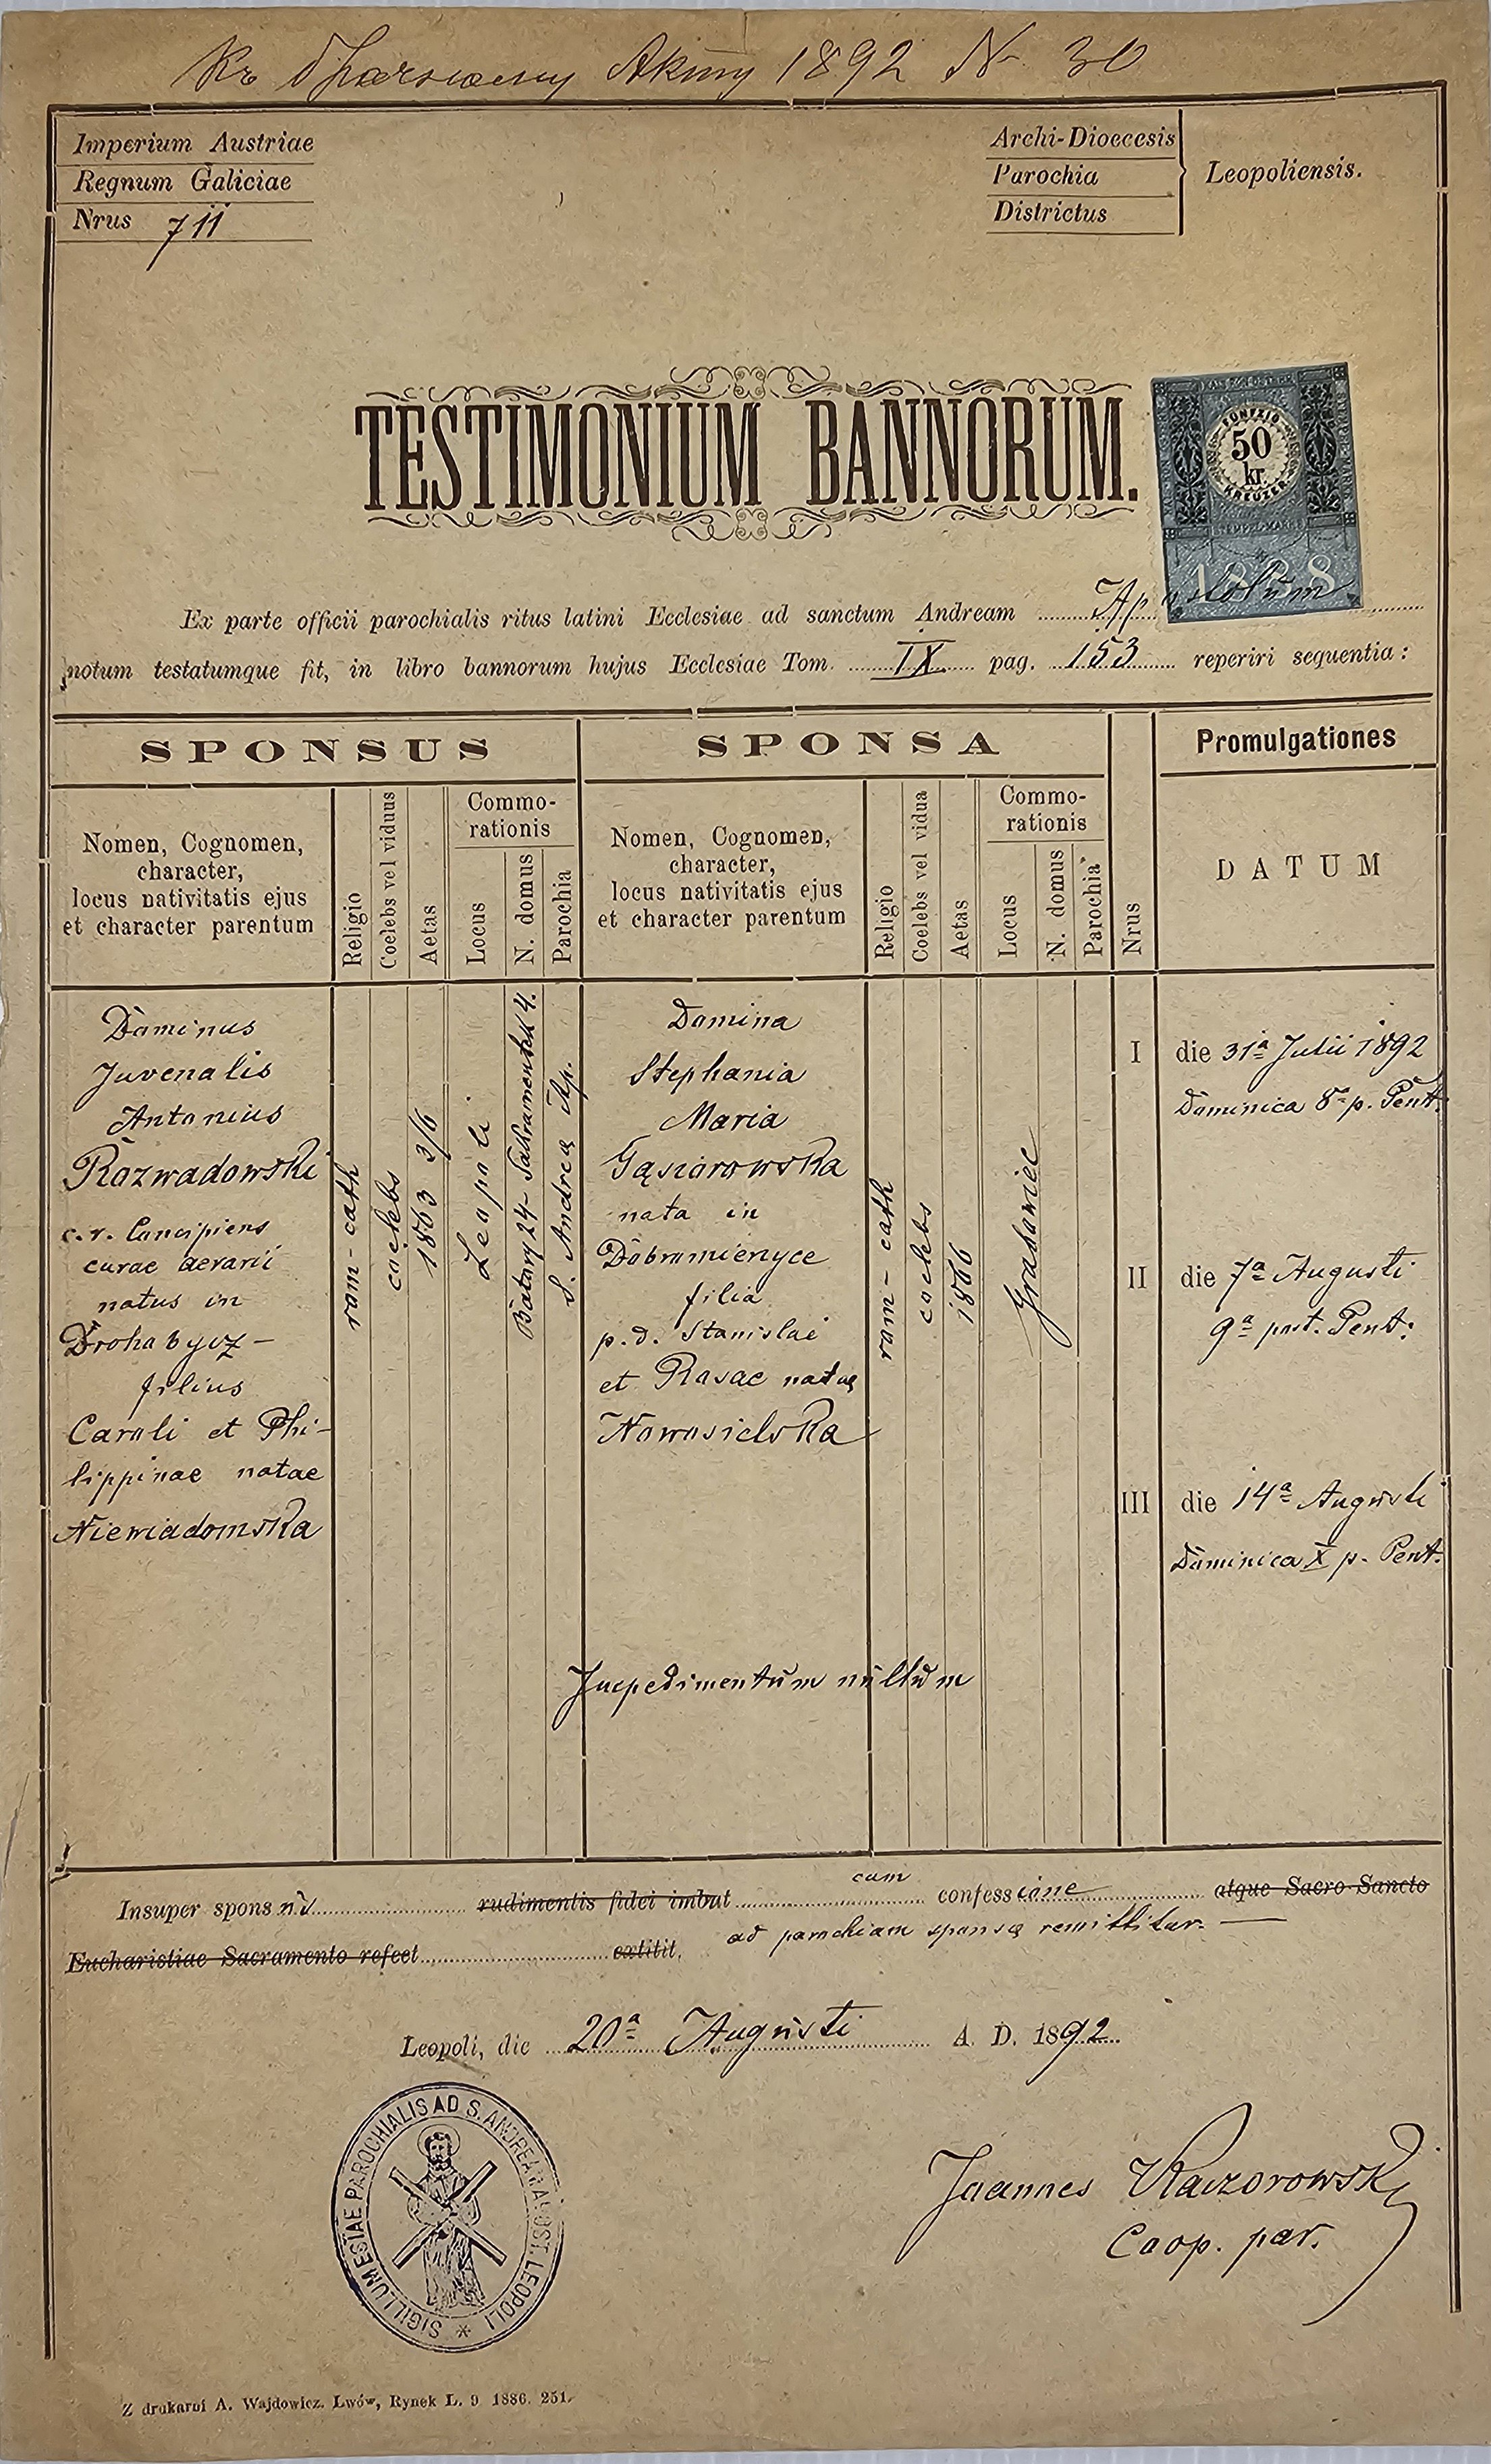 Къ бракосочному Акту 1892 N. 30
Imperium Austriae
Regnum Galiciae
Nrus 711
Archi-Dioecesis
Parochia
Districtus
Leopoliensis.
TESTIMONIUM BANNORUM.
FÜNFZIG
50
kr.
KREUZER
STEMPEL MARKE
1888
Ex parte officii parochialis ritus latini Ecclesiae ad sanctum Andream Apostolum
notum testatumque fit, in libro bannorum hujus Ecclesiae Tom. IX. pag. 153 reperiri sequentia:
SPONSUS
SPONSA
Promulgationes
Nomen, Cognomen,
character,
locus nativitatis ejus
et character parentum
Religio
Coelebs vel viduus
Aetas
Commo-
rationis
Locus
N. domus
Parochia
Nomen, Cognomen,
character,
locus nativitatis ejus
et character parentum
Religio
Coelebs vel vidua
Aetas
Commo-
rationis
Locus
N. domus
Parochia
Nrus
DATUM
Dominus
Juvenalis
Antonius
Rozwadowski
c. r. Concipiens
curae aerarii
natus in
Drohobycz -
filius
Caroli et Phi-
lippinae natae
Niewiadomska
rom - cath
coelebs
1863 3/6
Leopoli
Batory 24 - Sakramentek 4.
S. Andreą Ap.
Domina
Stephania
Maria
Gąsiorowska
nata in
Dobromierzyce
filia
p. d. Stanislai
et Rosae natae
Nowosielska
rom - cath
coelebs
1866
Grabowiec
I die 31a Julii 1892
Dominica 8a p. Pent.
II die 7a Augusti
9a post. Pent:
III die 14a Augusti
Dominica X p. Pent.
Impedimentum nullum
Insuper sponsus rudimentis fidei imbut cum confessione atque Sacro-Sancto
Eucharistiae Sacramento refect extitit. ad parochiam sponsę remittitur. —
Leopoli, die 20a Augusti A. D. 1892.
SIGILLUM ECCLESIAE PAROCHIALIS AD S. ANDREAM APOST. LEOPOLI *
Joannes Kaczorowski
Coop. par.
Z drukarni A. Wajdowicz. Lwów, Rynek L. 9 1886. 251.